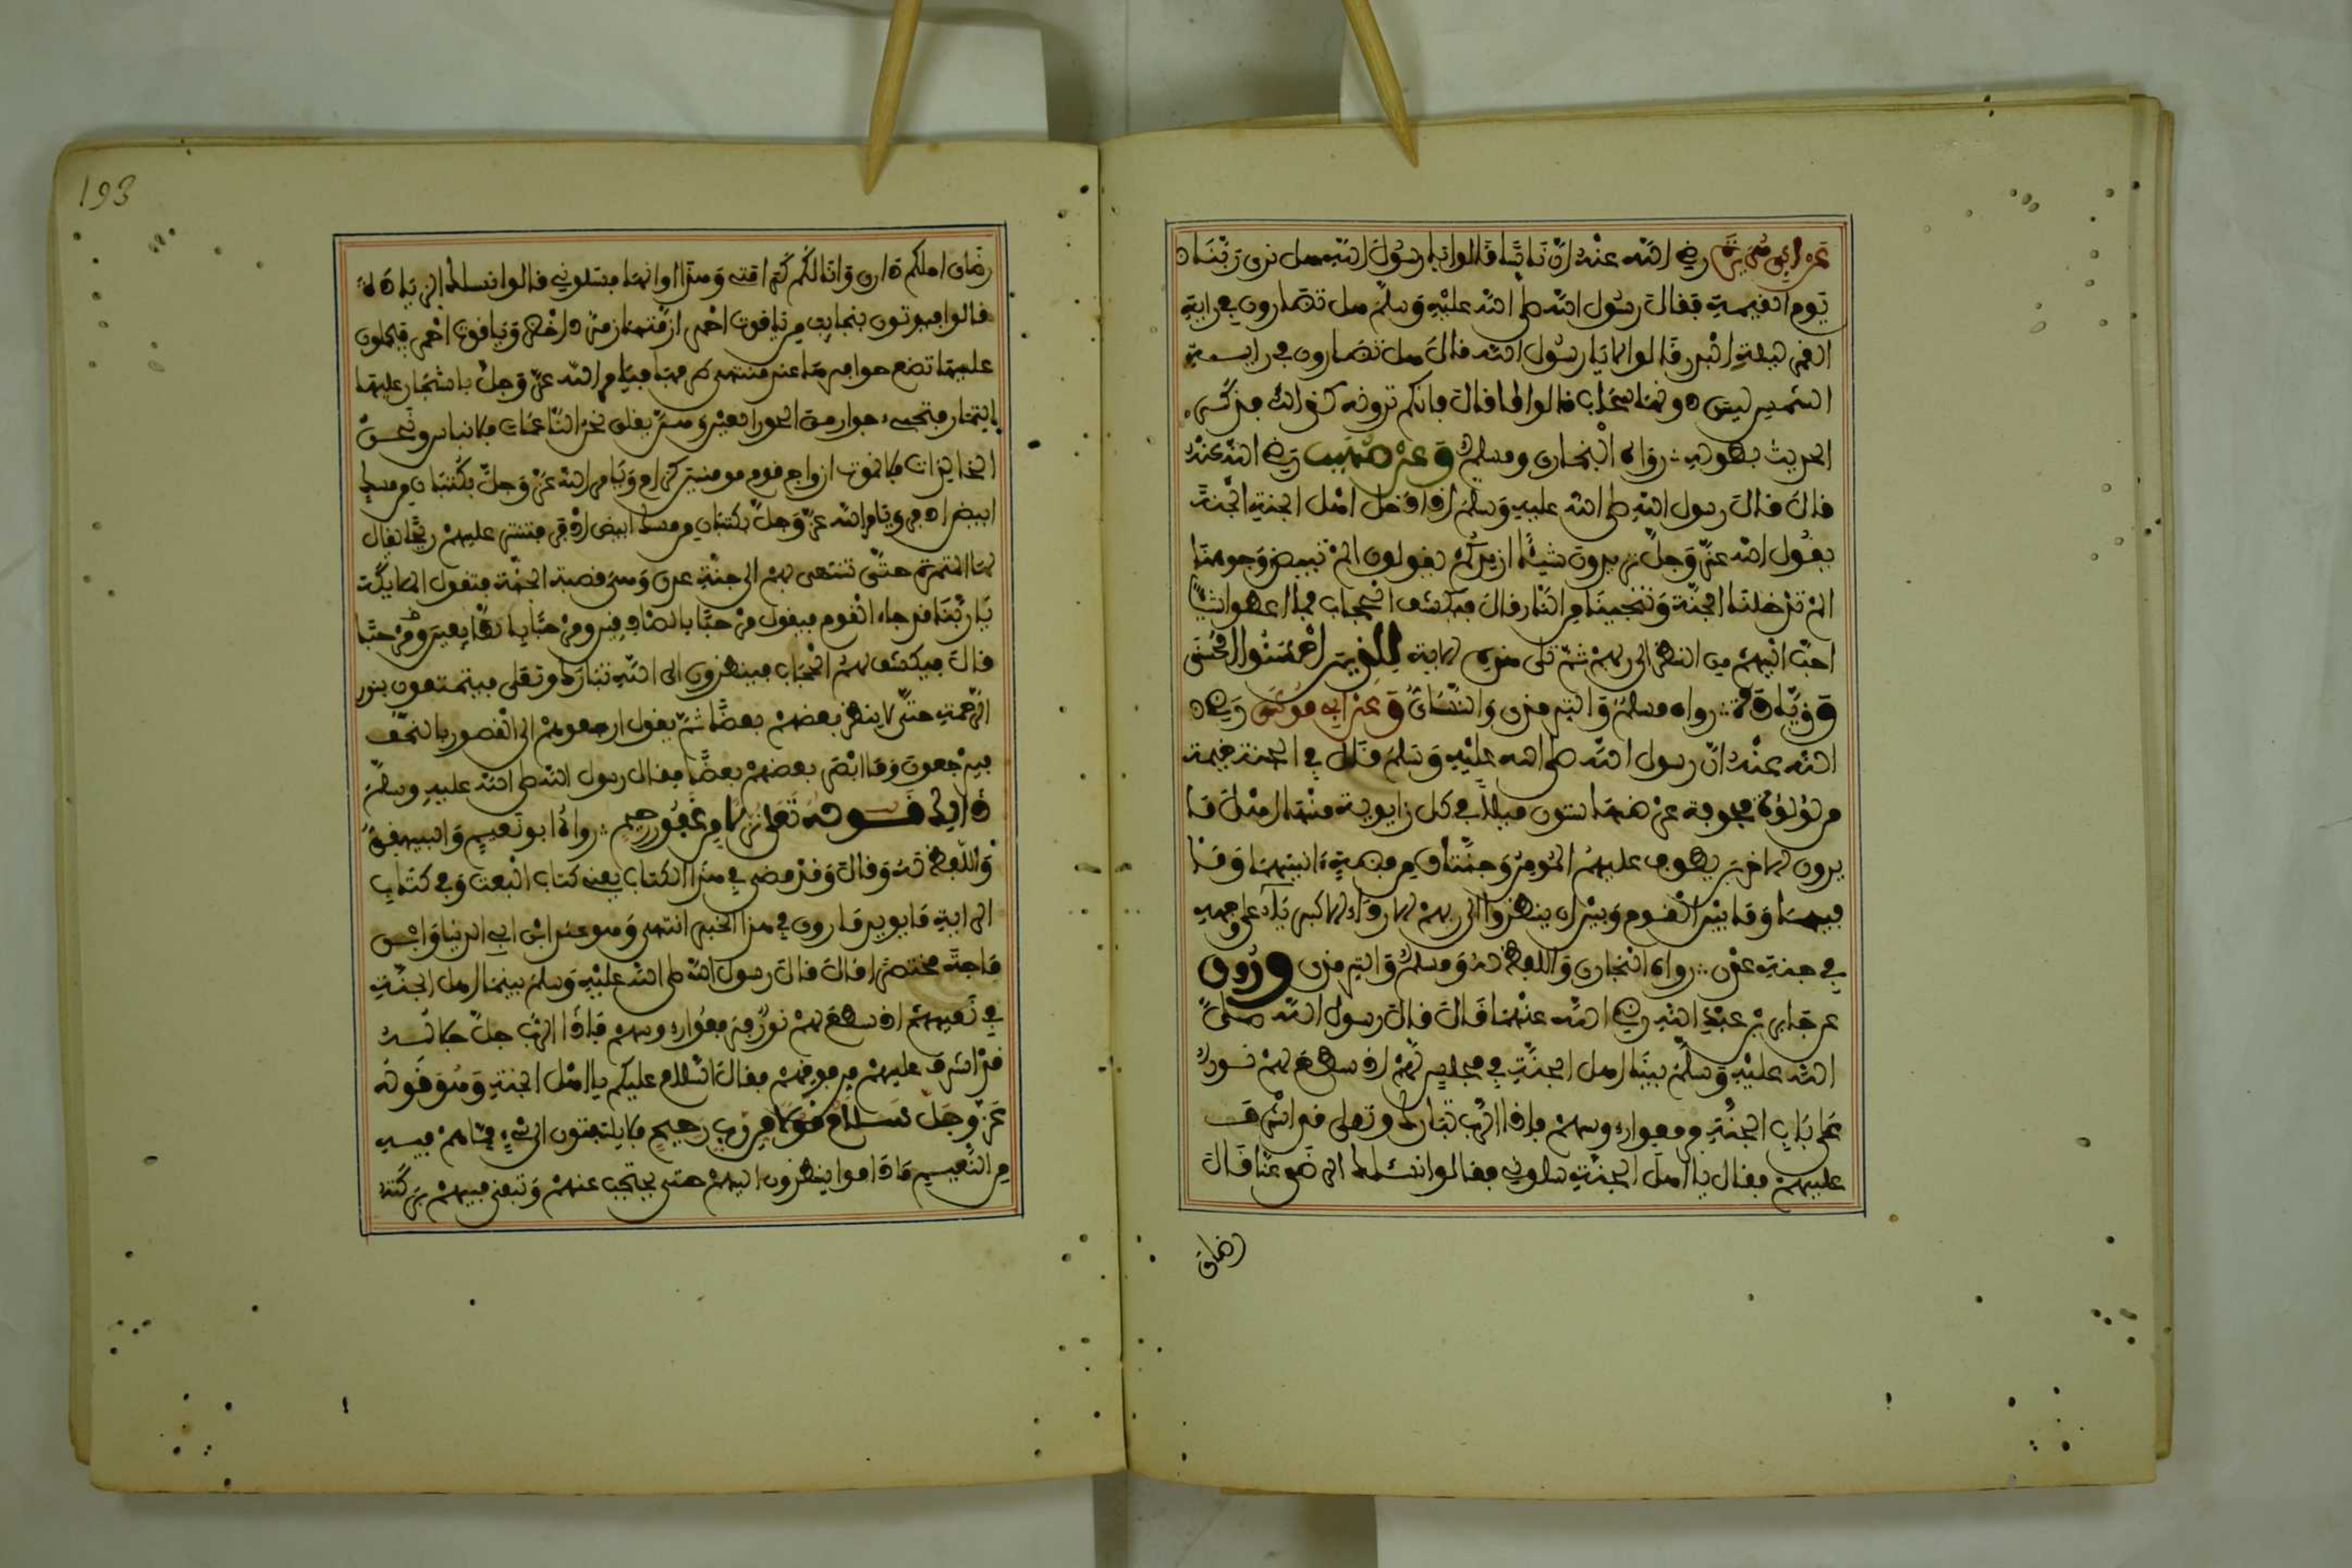 عن ابي هريرة رضي الله عنه ان ناسا قالوا يا رسول الله هل نرى ربنا
يوم القيمة فقال رسول الله صلى الله عليه وسلم هل تضارون في رؤية
القمر ليلة البدر قالوا لا يا رسول الله قال هل تضارون في رؤية
الشمس ليس دونها سحاب قالوا لا قال فانكم ترونه كذلك فذكر
الحديث بطوله رواه البخاري ومسلم وعن صهيب رضي الله عنه
قال قال رسول الله صلى الله عليه وسلم اذا دخل اهل الجنة الجنة
يقول الله عز وجل تريدون شيئا ازيدكم يقولون الم تبيض وجوهنا
الم تدخلنا الجنة وتنجينا من النار قال فيكشف الحجاب فما اعطوا شيئا
احب اليهم من النظر الى ربهم ثم تلى هذه الاية للذين احسنوا الحسنى
وزيادة رواه مسلم والترمذي والنسائ وعن ابي موسى رضي
الله عنه ان رسول الله صلى الله عليه وسلم قال في الجنة خيمة
من لؤلؤة مجوبة عرضها ستون ميلا في كل زاوية منها اهل ما
يرون الاخرين يطوف عليهم المومن وجنتان من فضة انيتهما وما
فيهما وما بين القوم وبين ان ينظروا الى ربهم الا رداء الكبرياء على وجهه
في جنة عدن رواه البخاري واللفظ له ومسلم والترمذي وروي
عن جابر بن عبد الله رضي الله عنهما قال قال رسول الله صلى
الله عليه وسلم بينا اهل الجنة في مجلس لهم اذ سطع لهم نور
على باب الجنة فرفعوا رءوسهم فاذا الرب تبارك وتعلى قد اشرف
عليهم فقال يا اهل الجنة سلوني فقالوا نسئلك الرضى عنا قال
رضاي
193
رضاي احلكم داري وانالكم كرامتي وهذا اوانها فسلوني قالوا نسئلك الزيادة
قالوا فيوتون بنجايب من ياقوت احمر ازمتها زمرد اخضر وياقوت احمر فيحملون
عليها تضع حوافرها عند منتهى طرفها فيامر الله عز وجل باشجار عليها
الثمار فتجيء جوار من الحور العين وهن يقلن نحن الناعمات فلا نباس ونحن
الخالدات فلا نموت ازواج قوم مومنين كرام ويامر الله عز وجل بكثبان من مسك
ابيض اذفر ويامر الله عز وجل بكثبان من مسك ابيض اذفر فتنثر عليهم ريحا يقال
لها المثيرة حتى تنتهي بهم الى جنة عدن وهي قصبة الجنة فتقول الملايكة
يا ربنا قد جاء القوم فيقول مرحبا بالصادقين ومرحبا بالطايعين ومرحبا
قال فيكشف لهم الحجاب فينظرون الى الله تبارك وتعلى فيتمتعون بنور
الرحمة حتى لا ينظر بعضهم بعضا ثم يقول ارجعوهم الى القصور بالتحف
فيرجعون وقد ابصر بعضهم بعضا فقال رسول الله صلى الله عليه وسلم
فذلك قوله تعلى نزلا من غفور رحيم رواه ابو نعيم والبيهقي
واللفظ له وقال وقد مضى في هذا الكتاب يعني كتاب البعث وفي كتاب
الرؤية ما يويد ما روي في هذا الخبر انتهى وهو عند ابن ابي الدنيا وابن
ماجة مختصرا قال قال رسول الله صلى الله عليه وسلم بينما اهل الجنة
في نعيمهم اذ سطع لهم نور فرفعوا رءوسهم فاذا الرب جل جلاله
قد اشرف عليهم من فوقهم فقال السلام عليكم يا اهل الجنة وهو قوله
عز وجل سلام قولا من رب رحيم فلا يلتفتون الى شيء مما هم فيه
من النعيم ما داموا ينظرون اليهم حتى يحتجب عنهم وتبقى فيهم بركته